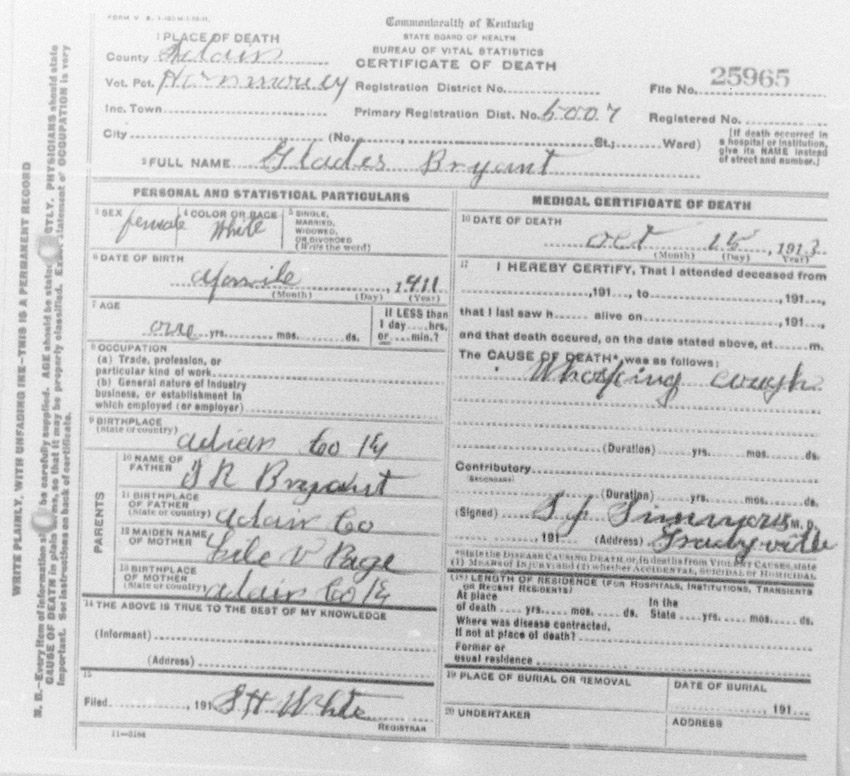 FORM V. S. 1-
Commonwealth of Kentucky
STATE BOARD OF HEALTH
BUREAU OF VITAL STATISTICS
CERTIFICATE OF DEATH
1 PLACE OF DEATH
County Adair
Vot. Pct. Harmony Registration District No. File No. 25965
Inc. Town Primary Registration Dist. No. 5007 Registered No.
City (No. , St.; Ward) [If death occurred in a hospital or institution, give its NAME instead of street and number.]
2 FULL NAME Glades Bryant
PERSONAL AND STATISTICAL PARTICULARS
3 SEX female 4 COLOR OR RACE White 5 SINGLE, MARRIED, WIDOWED, OR DIVORCED (Write the word)
6 DATE OF BIRTH
Aprile , 1911
(Month) (Day) (Year)
7 AGE one yrs. mos. ds. If LESS than 1 day hrs. or min.?
8 OCCUPATION
(a) Trade, profession, or
particular kind of work
(b) General nature of industry
business, or establishment in
which employed (or employer)
9 BIRTHPLACE
(State or country) adian Co Ky
PARENTS
10 NAME OF FATHER Bryant
11 BIRTHPLACE OF FATHER (State or country) Adair Co
12 MAIDEN NAME OF MOTHER V Page
13 BIRTHPLACE OF MOTHER (State or country) Adair Co Ky
14 THE ABOVE IS TRUE TO THE BEST OF MY KNOWLEDGE
(Informant)
(Address)
15
Filed , 191 S H White
REGISTRAR
11-3184
MEDICAL CERTIFICATE OF DEATH
16 DATE OF DEATH
Oct 15 , 1913
(Month) (Day) (Year)
17 I HEREBY CERTIFY, That I attended deceased from
,191 , to ,191 ,
that I last saw h alive on ,191 ,
and that death occured, on the date stated above, at m.
The CAUSE OF DEATH* was as follows:
Whoping cough
(Duration) yrs. mos. ds.
Contributory
(SECONDARY)
(Duration) yrs. mos. ds.
(Signed) Simmons M. D.
, 191 (Address) Gradyville
*State the DISEASE CAUSING DEATH or, in deaths from VIOLENT CAUSES, state
(1) MEANS OF INJURY; and (2) whether ACCIDENTAL, SUICIDAL or HOMICIDAL
18 LENGTH OF RESIDENCE (FOR HOSPITALS, INSTITUTIONS, TRANSIENTS
OR RECENT RESIDENTS)
At place of death yrs. mos. ds. In the State yrs. mos. ds.
Where was disease contracted,
If not at place of death?
Former or
usual residence
19 PLACE OF BURIAL OR REMOVAL DATE OF BURIAL
191
20 UNDERTAKER ADDRESS
WRITE PLAINLY, WITH UNFADING INK—THIS IS A PERMANENT RECORD
N. B.—Every item of information be carefully supplied. AGE should be stated CTLY. PHYSICIANS should state
CAUSE OF DEATH in plain ms, so that it may be properly classified. statement of OCCUPATION is very
important. See instructions on back of certificate.